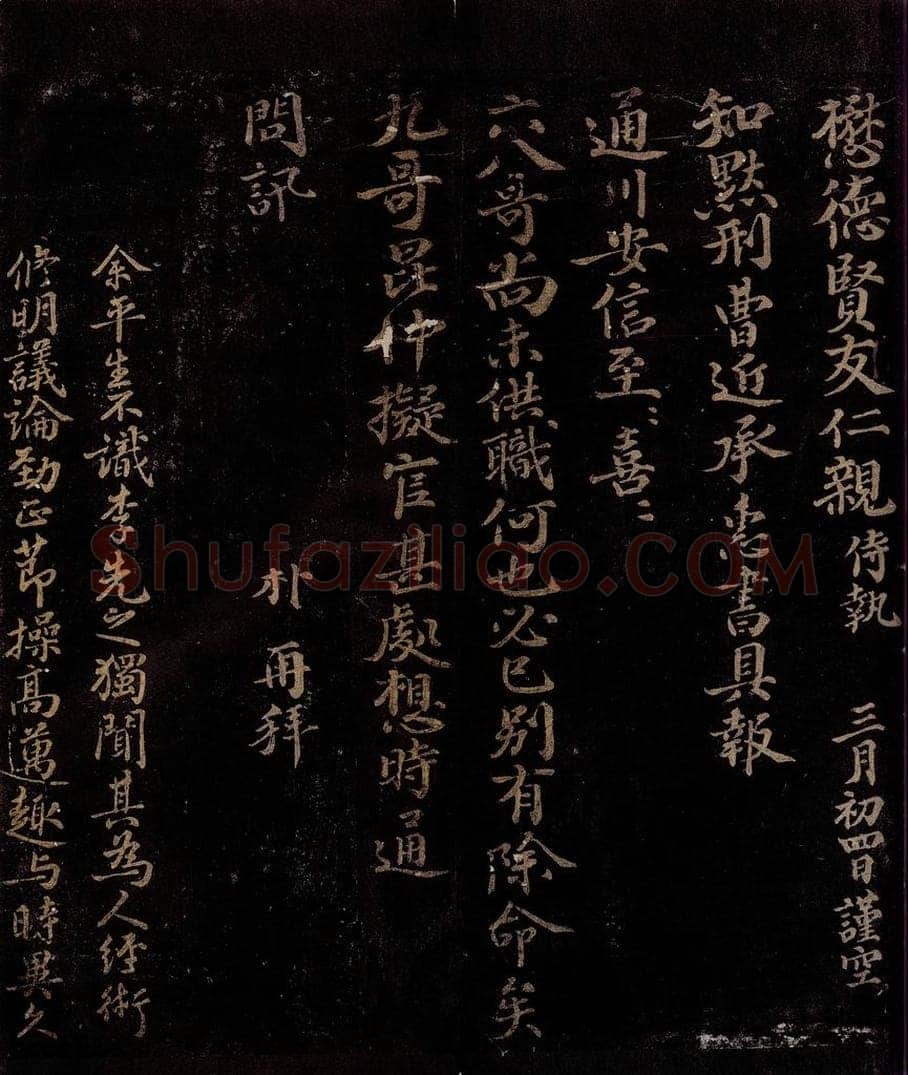 懋德賢友仁親 侍執 三月初四日謹空
知默刑曹近承惠書具報
通川安信至〻喜〻
六八哥尚未供職何也必已別有除命矣
九哥昆仲擬官甚處想時通
問訊 朴再拜
余平生不識李先之獨聞其為人經術
修明議論勁正節操高邁趣与時異久
Shufaziliao.COM